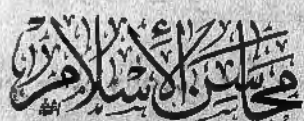 محاسن الإسلام